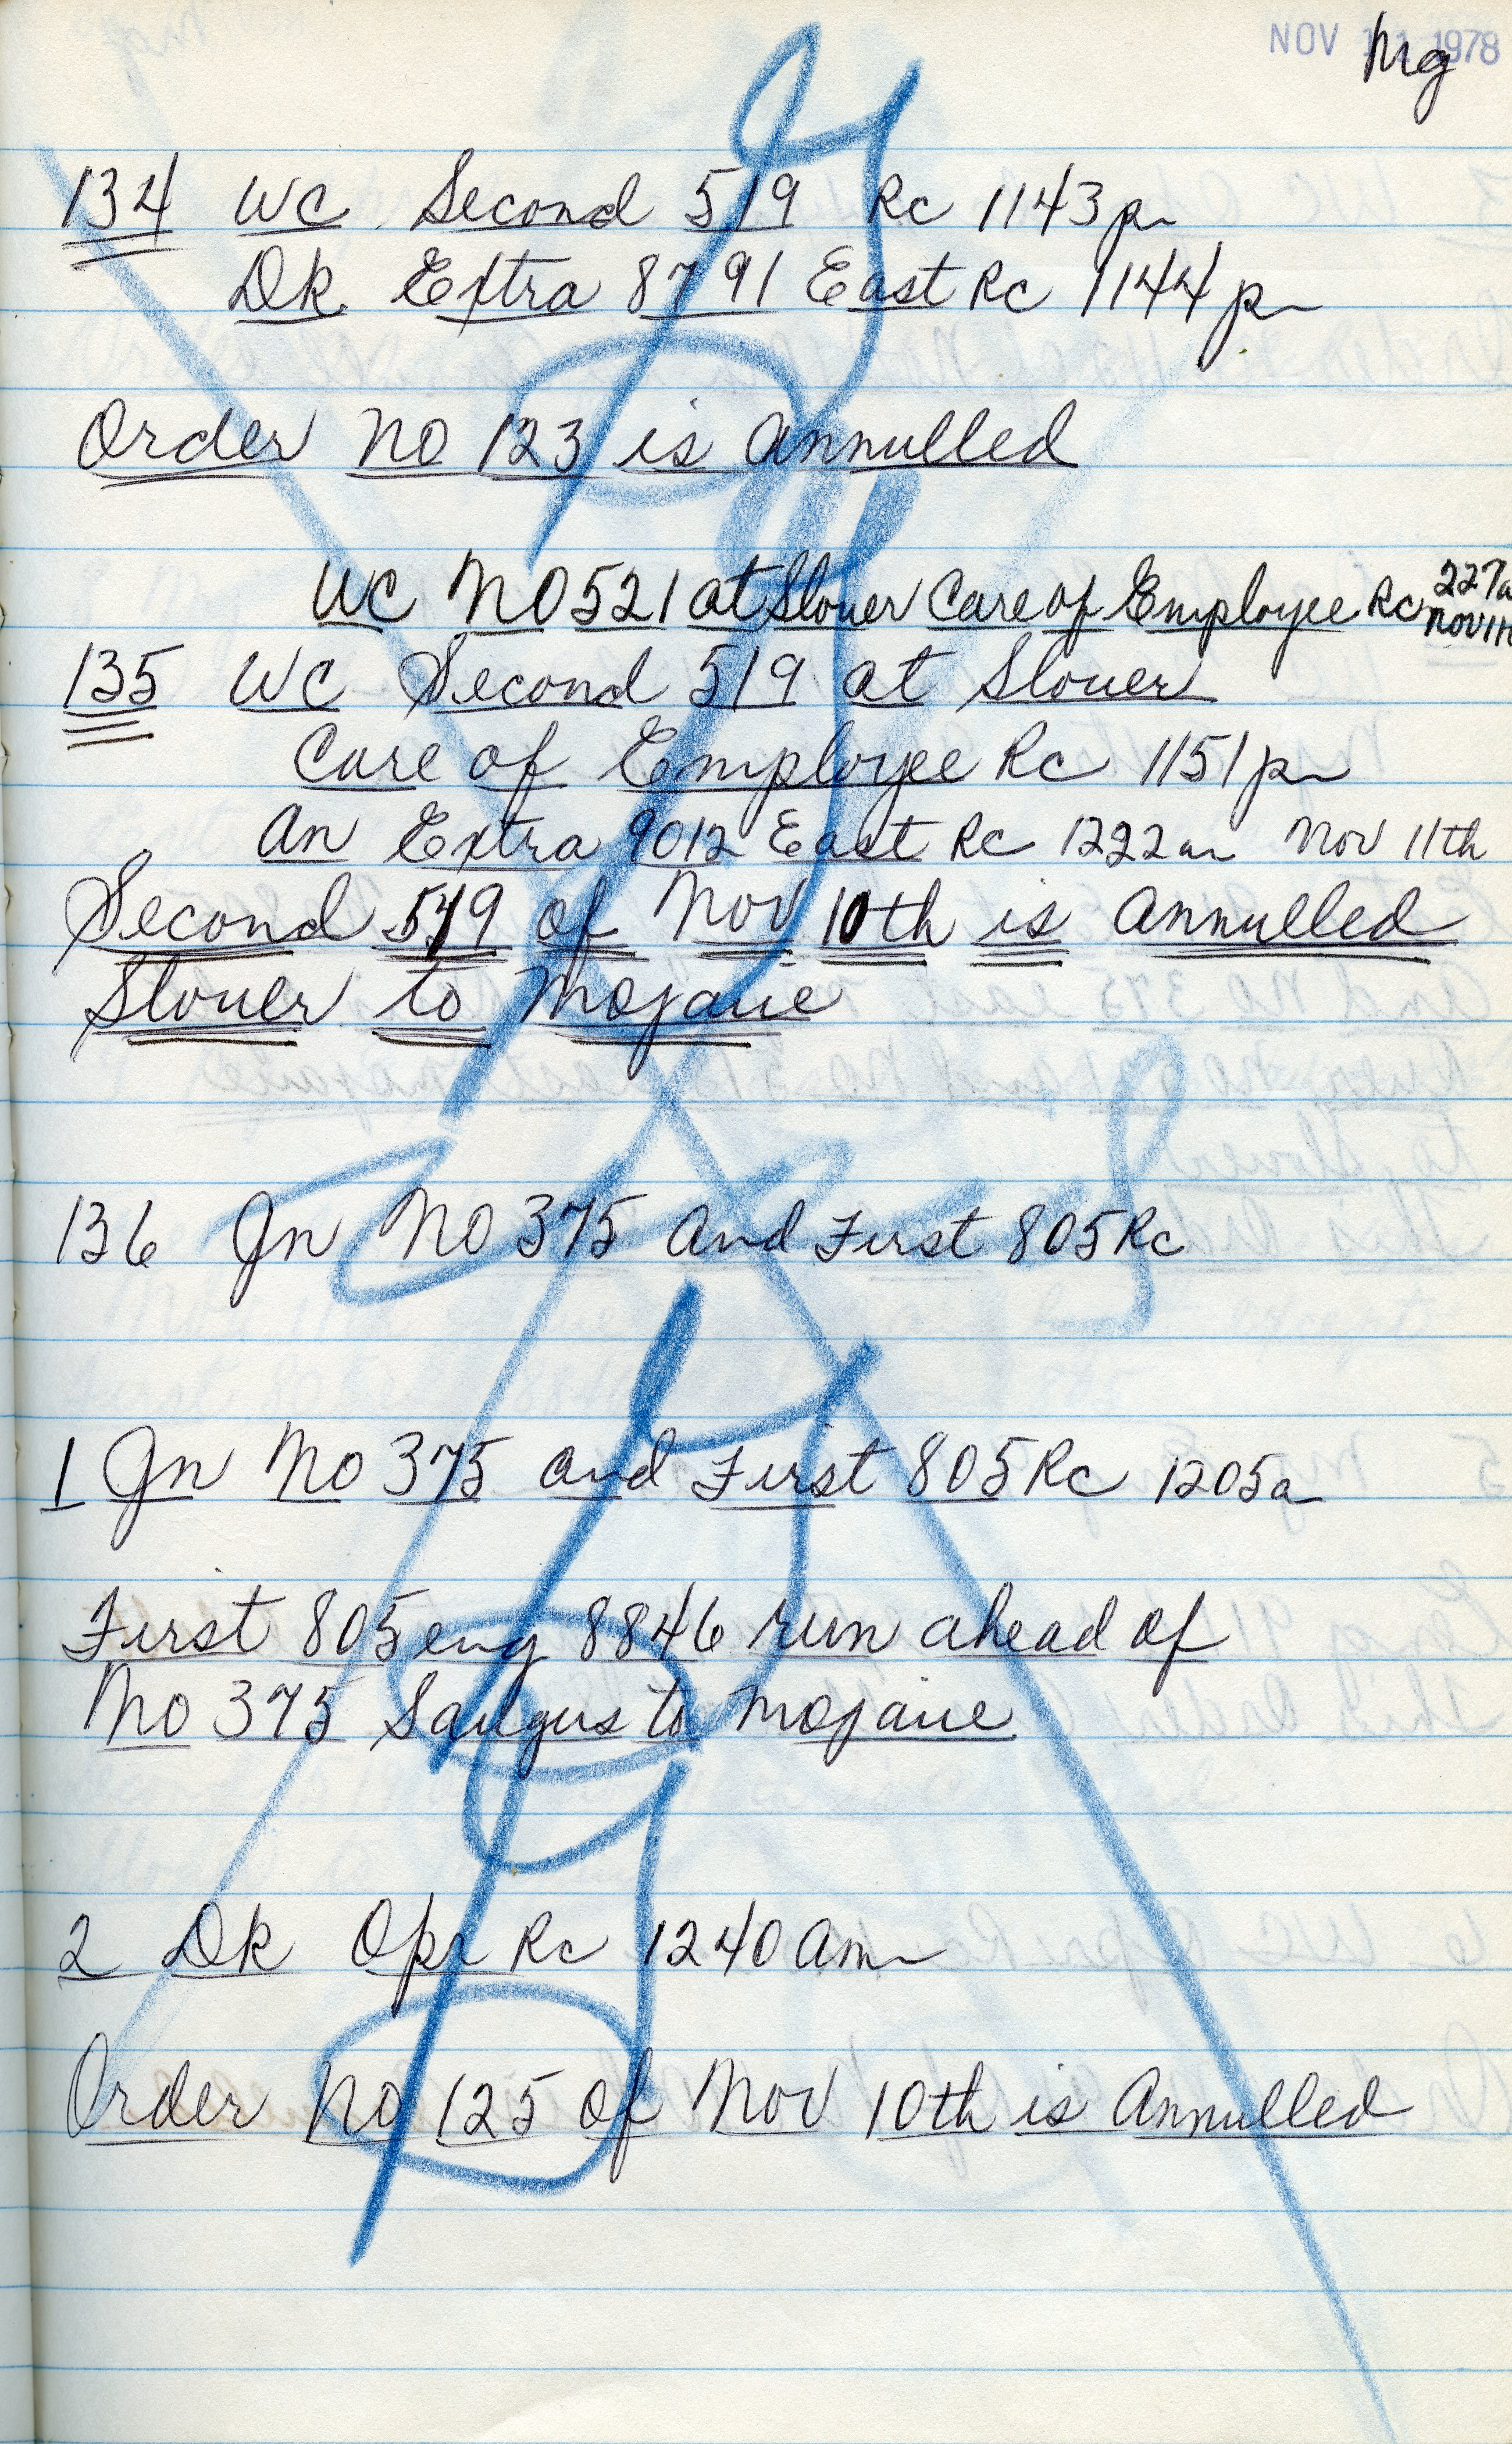 NOV 11 1978
Mg
134 WC Second 519 Rc 1143 pm
Dk Extra 8791 East Rc 1144 pm
Order No 123 is Annulled
WC No 521 at Slover Care of Employee Rc 227a
Nov 11th
135 WC Second 519 at Slover
Care of Employee Rc 1151 pm
An Extra 9012 East Rc 1222 am Nov 11th
Second 519 of Nov 10th is Annulled
Slover to Mojave
136 Jn No 375 and First 805 Rc
1 Jn No 375 and First 805 Rc 1205a
First 805 eng 8846 run ahead of
No 375 Saugus to Mojave
2 Dk Opr Rc 1240 Am
Order No 125 of Nov 10th is Annulled